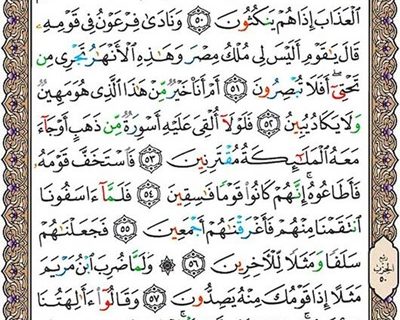 ٱلْعَذَابَ إِذَا هُمْ يَنكُثُونَ ٥٠ وَنَادَىٰ فِرْعَوْنُ فِي قَوْمِهِۦ
قَالَ يَٰقَوْمِ أَلَيْسَ لِي مُلْكُ مِصْرَ وَهَٰذِهِ ٱلْأَنْهَٰرُ تَجْرِي مِن
تَحْتِيٓ ۖ أَفَلَا تُبْصِرُونَ ٥١ أَمْ أَنَا۠ خَيْرٌ مِّنْ هَٰذَا ٱلَّذِي هُوَ مَهِينٌ
وَلَا يَكَادُ يُبِينُ ٥٢ فَلَوْلَآ أُلْقِيَ عَلَيْهِ أَسْوِرَةٌ مِّن ذَهَبٍ أَوْ جَآءَ
مَعَهُ ٱلْمَلَٰٓئِكَةُ مُقْتَرِنِينَ ٥٣ فَٱسْتَخَفَّ قَوْمَهُۥ
فَأَطَاعُوهُ ۚ إِنَّهُمْ كَانُوا۟ قَوْمًا فَٰسِقِينَ ٥٤ فَلَمَّآ ءَاسَفُونَا
ٱنتَقَمْنَا مِنْهُمْ فَأَغْرَقْنَٰهُمْ أَجْمَعِينَ ٥٥ فَجَعَلْنَٰهُمْ
سَلَفًا وَمَثَلًا لِّلْءَاخِرِينَ ٥٦ ۞ وَلَمَّا ضُرِبَ ٱبْنُ مَرْيَمَ
مَثَلًا إِذَا قَوْمُكَ مِنْهُ يَصِدُّونَ ٥٧ وَقَالُوٓا۟ ءَأَٰلِهَتُنَا
ربع
الحزب
٥٠